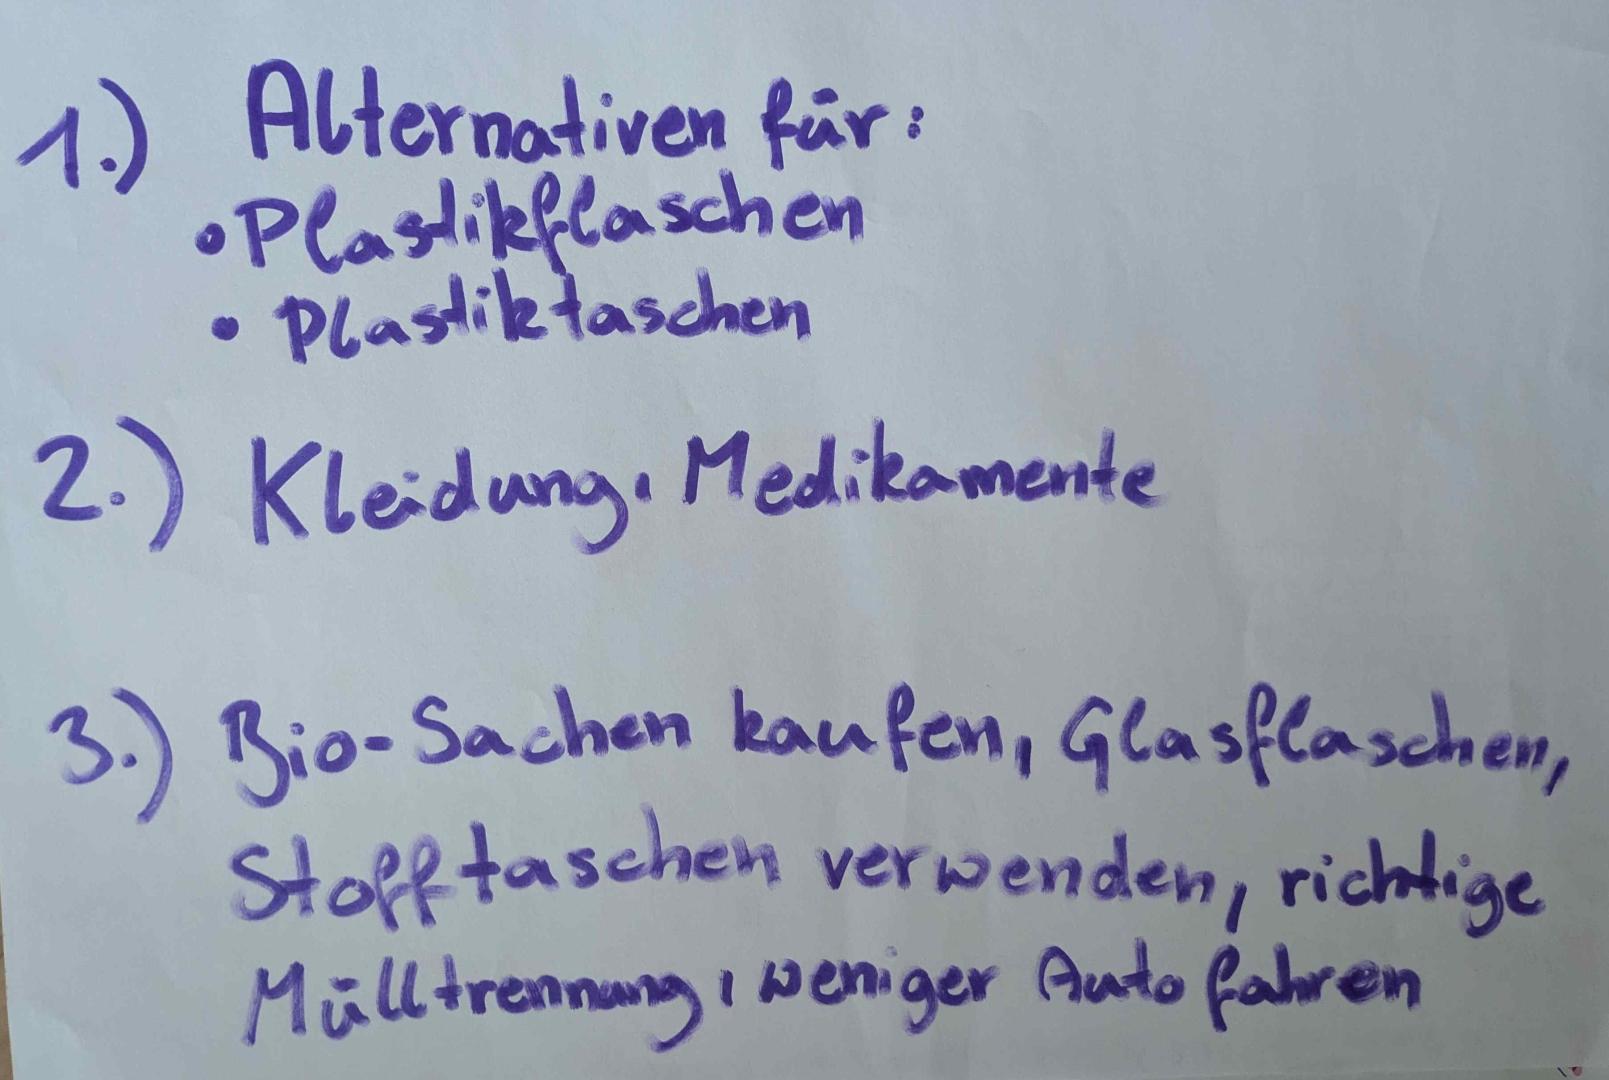 1.) Alternativen für:
• Plastikflaschen
• Plastiktaschen
2.) Kleidung, Medikamente
3.) Bio-Sachen kaufen, Glasflaschen,
Stofftaschen verwenden, richtige
Mülltrennung, weniger Auto fahren